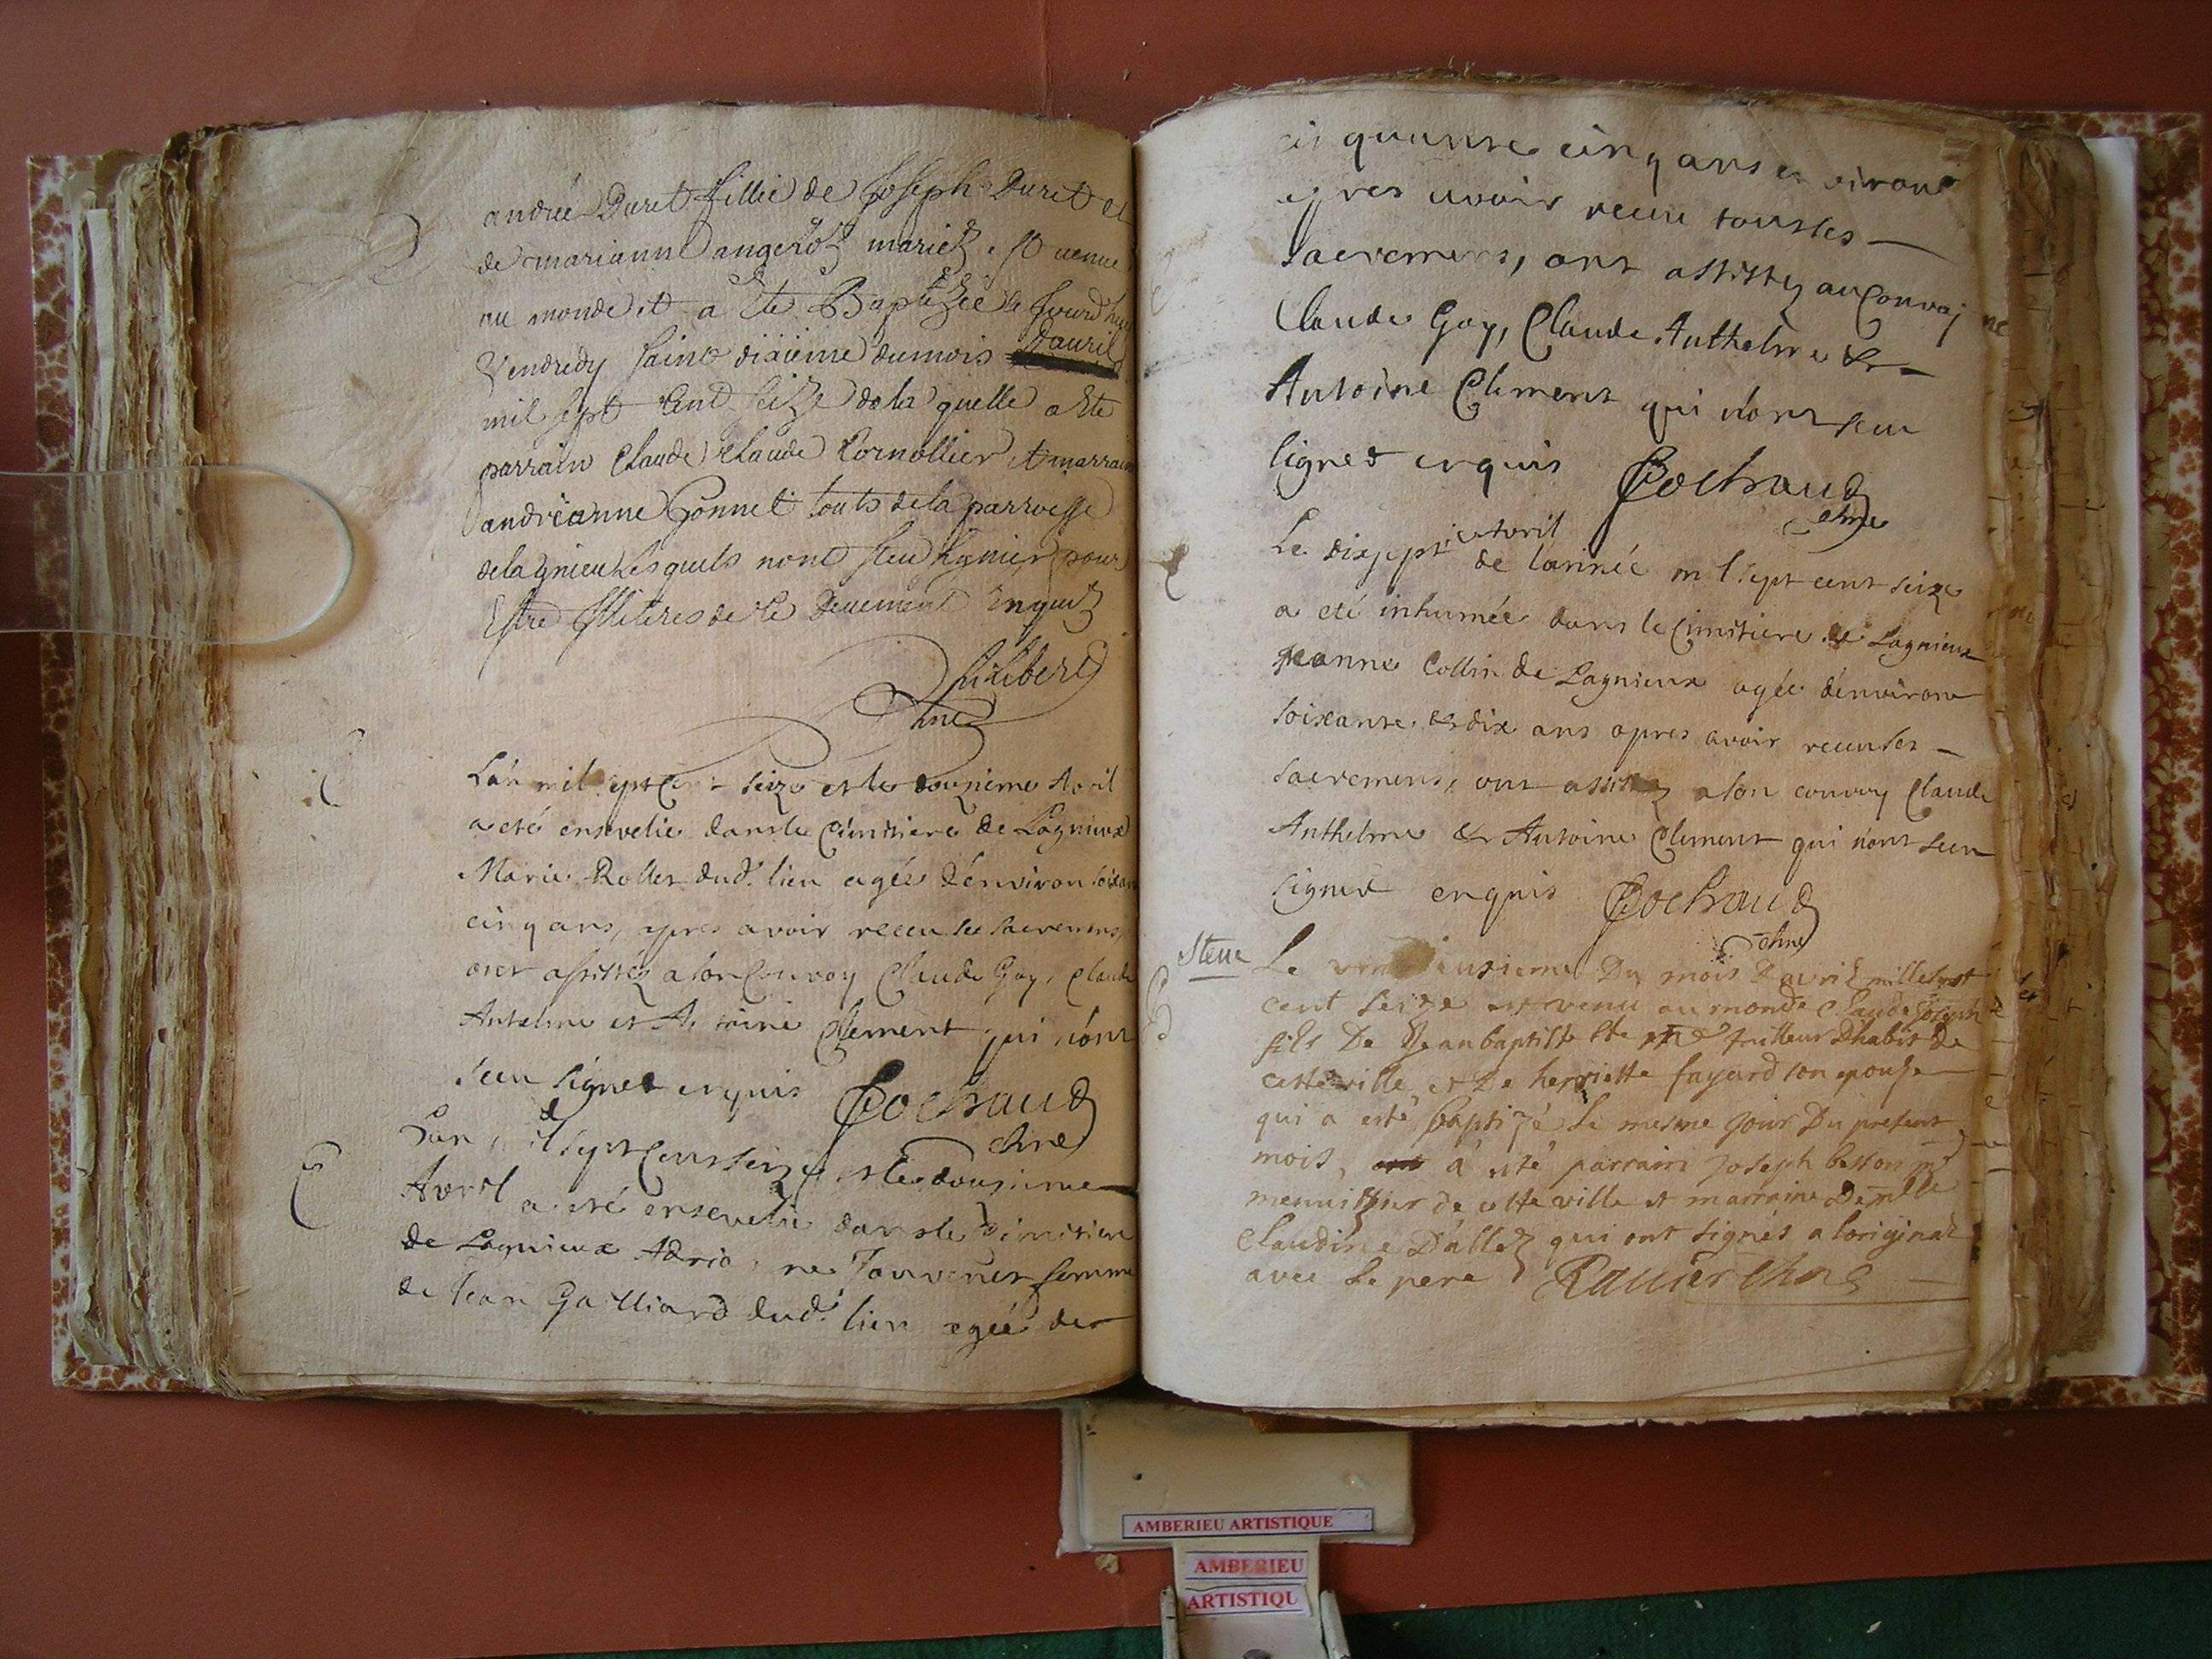 andrée Duret fillie de Joseph Duret et
de marianne angeloz mariez. st venue
au monde et a Ete Baptizée le Jourdhuy
Vendredy saint dixieme du mois Dauril
mil sept cent seize de la quelle a Ete
parrain Claude Claude Cornollier et marraine
andréanne Gonnet touts de la parroesse
de lagnieu Lesquels nont sceu signier pour
Estre Illiteres de ce Deuement Enquiz
Philibert
vhire
L'an mil sept Cent seize et le douzieme Avril
a eté ensevelie dans le Cimitiere de Lagnieux
Marie Rollet dud. lieu agée d'environ soixan
cinq ans, apres avoir receu les sacremens,
ont assistéz a son Convoy Claude Gay, Claude
Antelme et Antoine Clement qui n'ont
sceu signer enquis Cochaud
vhire
L'an mil sept Cens seize et le douzieme
Avril a eté ensevelie dans le Cimitiere
de Lagnieux Adrianne Jouvenet femme
de Jean Gailliard dud. lieu agée de
cinquante cinq ans environ
apres avoir receu tous les
sacremens, ont assistez au Convoy
Claude Gay, Claude Anthelme &
Antoine Clement qui n'ont sceu
signer enquis Cochaud
vhire
Le dixsept.e Avril de l'année mil sept cent seize
a eté inhumée dans le Cimitiere de Lagnieux
Jeanne Collin de Lagnieux agée d'environ
soixante & dix ans apres avoir receu les
sacremens, ont assistez a son convoy Claude
Anthelme & Antoine Clement qui n'ont sceu
signer enquis Cochaud
vhire
Le du mois Davril mille sept
cent seize est venu au monde Claude Joseph
fils De Jean baptiste tailleur Dhabit de
cette ville et De henriette fayard son epouse
qui a esté baptizé le mesme jour Du present
mois, a été parrain Joseph beston m.e
menuissier de cette ville et marraine Demlle
Claudine Dallez qui ont signés a loriginal
avec le pere Ravier vhire
AMBERIEU ARTISTIQUE
AMBERIEU
ARTISTIQU